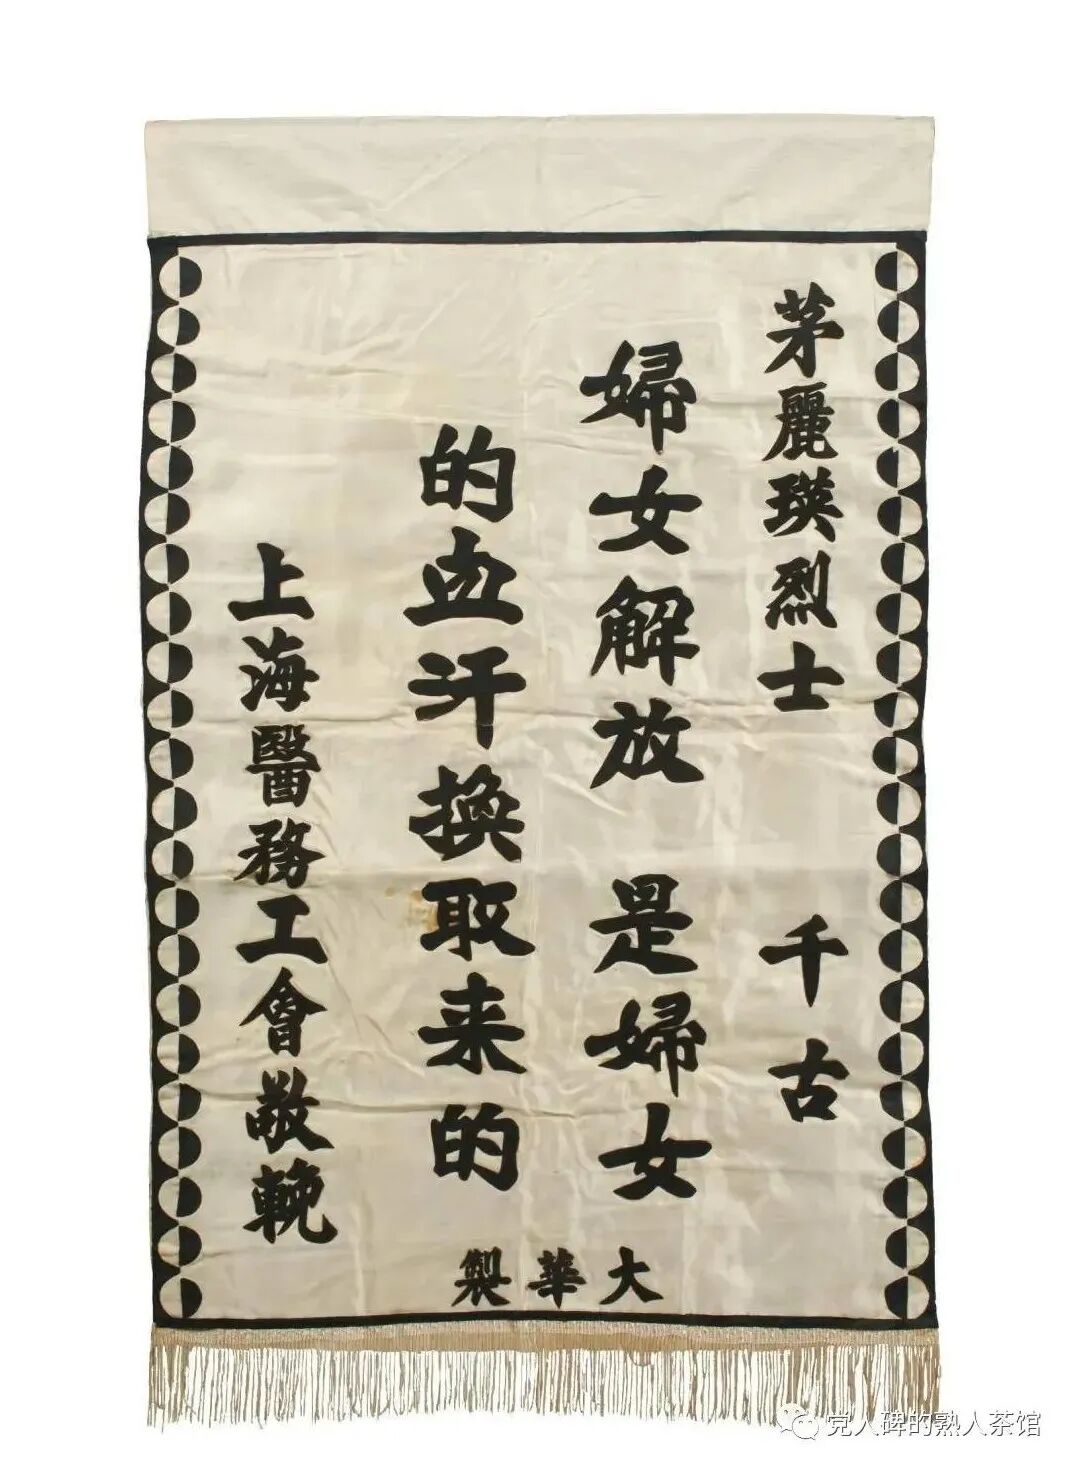 茅麗瑛烈士 千古
婦女解放 是婦女
的血汗換取来的
上海醫務工會敬輓
大華製
党人碑的熟人茶馆